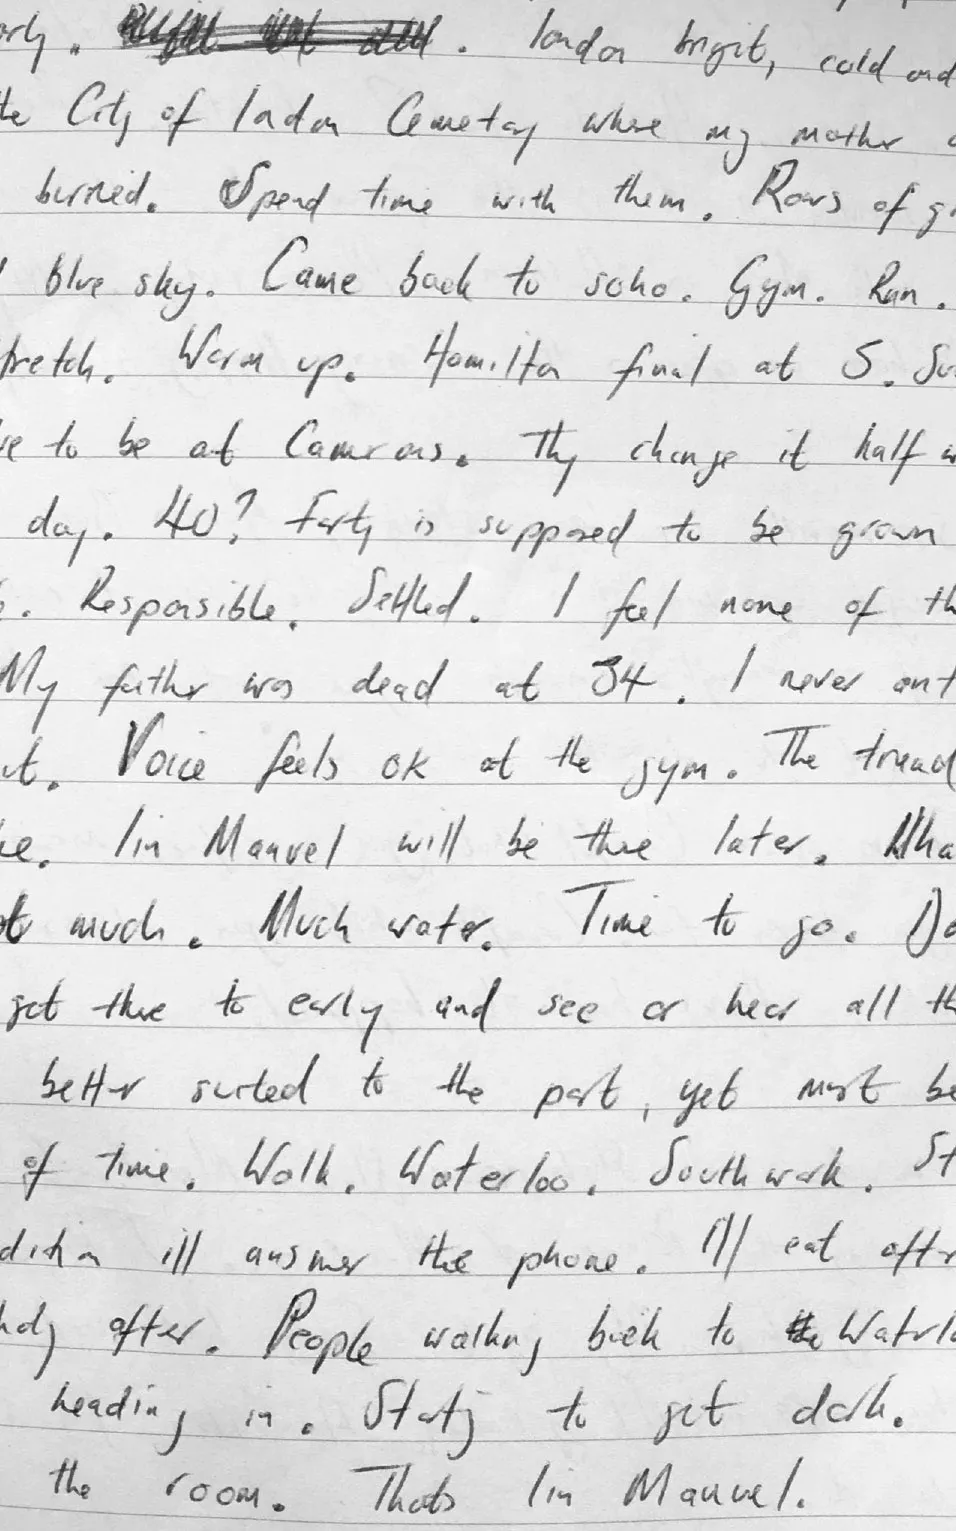 . London bright, cold and
the City of London Cemetary where my mother
burried. Spend time with them. Rows of
blue sky. Came back to soho. Gym. Run.
stretch. Warm up. Hamilton final at 5.
to be at Camerons. They change it half
day. 40? Forty is supposed to be grown
. Responsible. Settled. I feel none of th
My father was dead at 34. I never
. Voice feels ok at the gym. The tread
. Lin Manuel will be there later. Wha
much. Much water. Time to go. Do
get there to early and see or hear all th
better suited to the part, yet must be
of time. Walk. Waterloo. Southwark. St
ill answer the phone. I'll eat after
after. People walking back to Waterlo
heading in. Starting to get dark.
the room. Thats Lin Manuel.